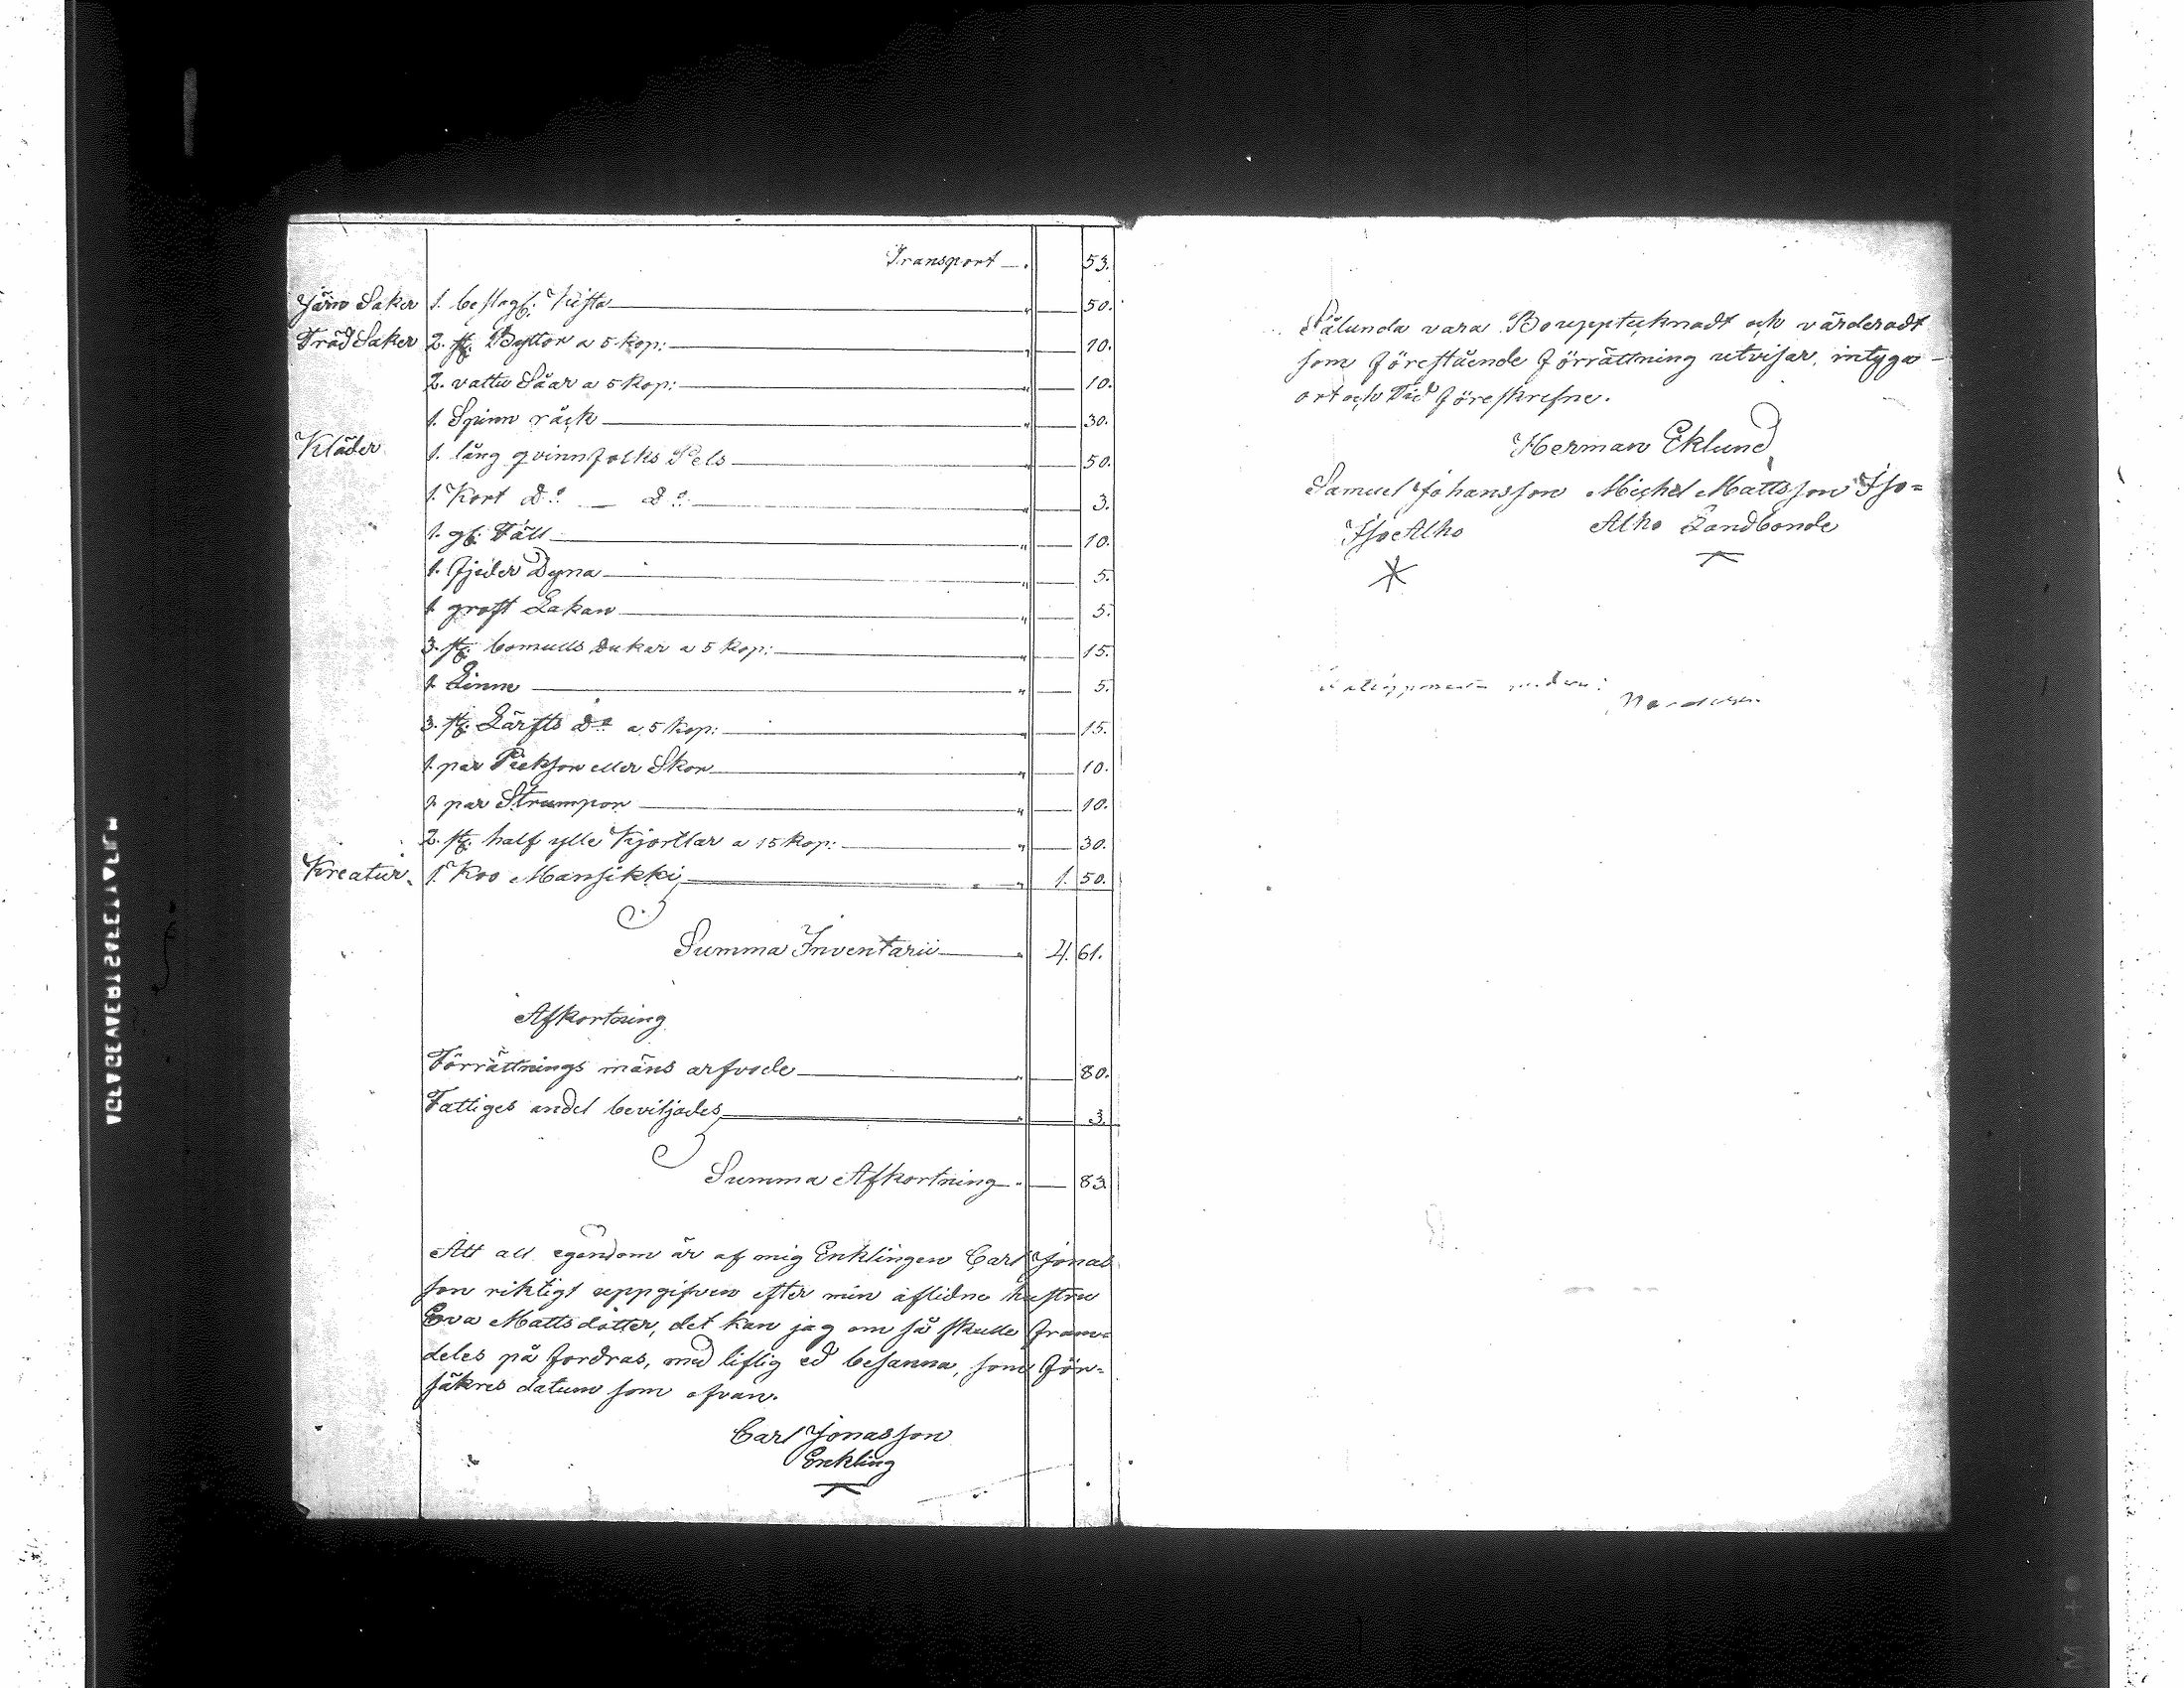 Transport — . 53.
Järn Saker 1. beslagt: Kista — " — 50.
Träd Saker 2. st: Byttor a 5 kop: — " — 10.
2. vattu Såar a 5 kop: — " — 10.
1. Spinn råck — " — 30.
Kläder 1. lång qvinnfolks Pels — " — 50.
1. Kort do — do — " — 3.
1. gl: Fäll — " — 10.
1. fjeder Dyna — " — 5.
1 groft Lakan — " — 5.
3. st: bomulls Dukar a 5 kop: — " — 15.
1. Linne — " — 5.
3. st: Lärfts do a 5 kop: — " — 15.
1. par Pieksor eller Skor — " — 10.
1. par Strumpor — " — 10.
2. st: half ylle Kjortlar a 15 kop: — " — 30.
Kreatur. 1. Koo Mansikki — " 1. 50.
Summa Inventarii — " 4. 61.
Afkortning
Förrättnings mäns arfvode — " — 80.
Fattiges andel beviljades — " — 3.
Summa Afkortning — " — 83
Att all egendom är af mig Enklingen Carl Jonas
son riktigt uppgifven efter min aflidne hustru
Eva Mattsdotter, det kan jag om så skulle fram=
deles på fordras, med liflig ed besanna, som för=
säkres datum som ofvan.
Carl Jonasson
Enkling
Sålunda vara Bouppteknadt och värderadt
som förestående förrättning utvisar, intyga —
ort och tid föreskrefne.
Herman Eklund
Samuel Johansson Michel Mattsson Iso=
Iso Alho Alho Landbonde